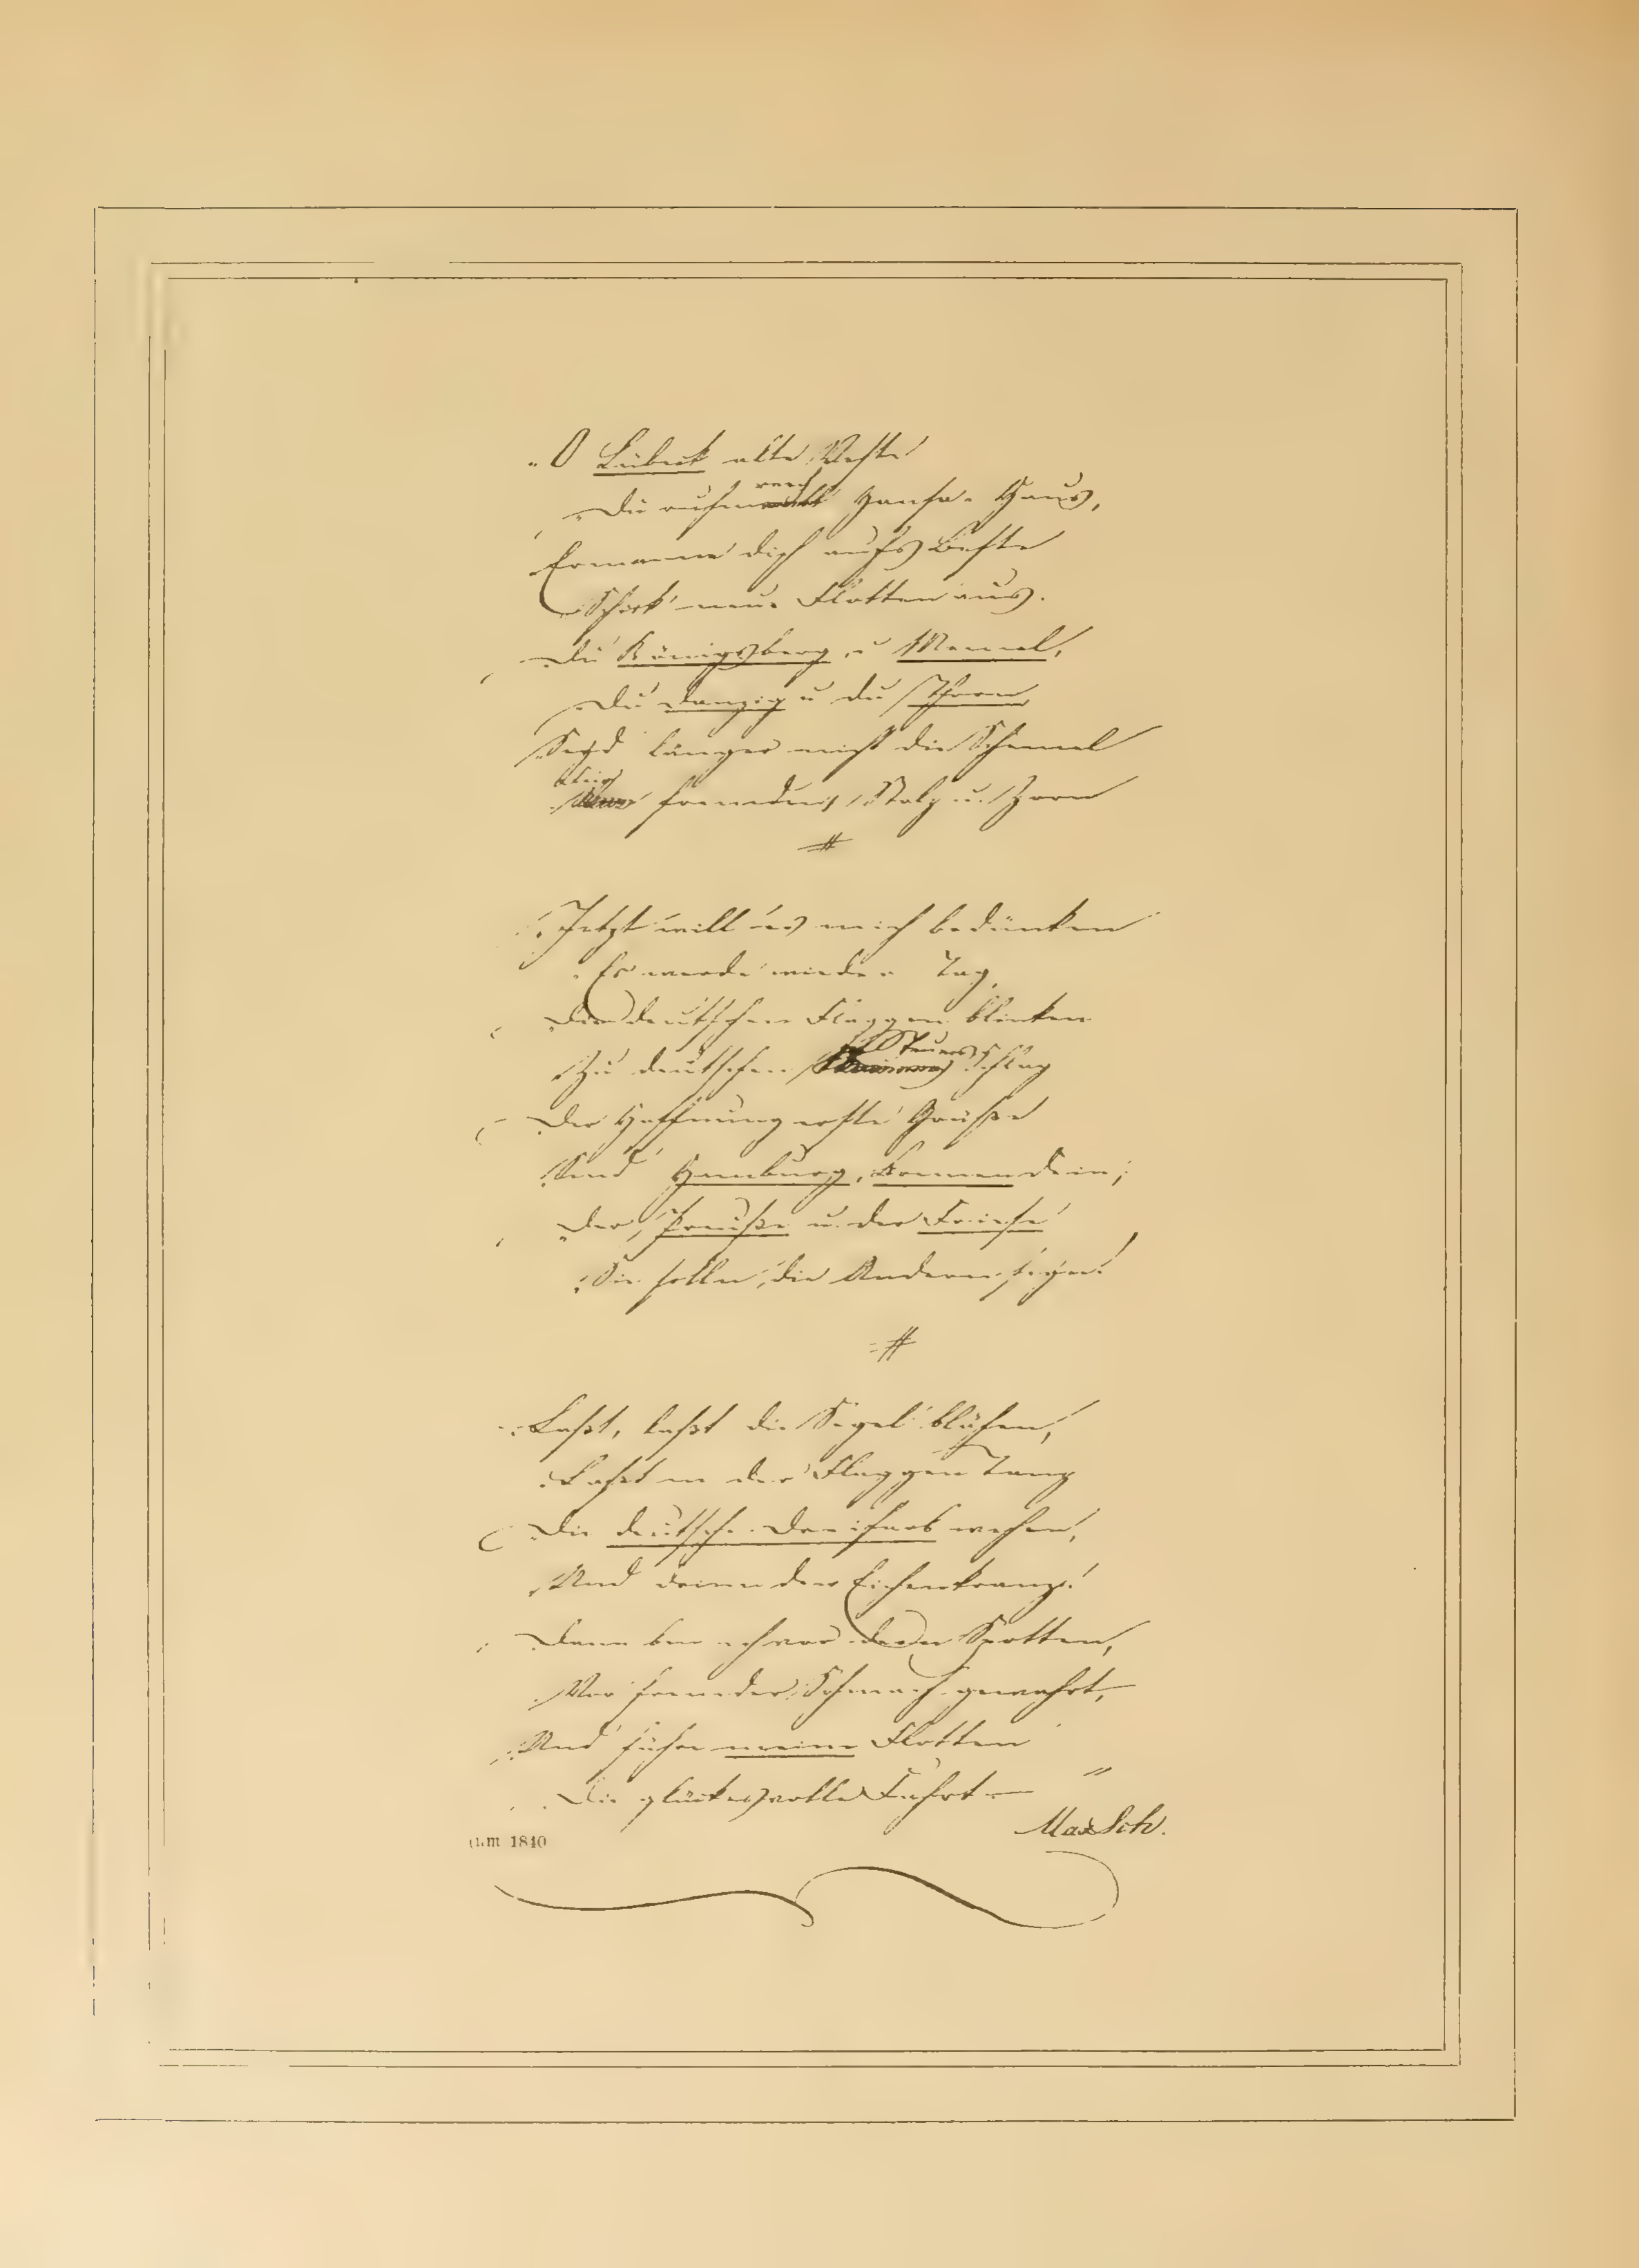 „O Lübeck alte Veste
reich
„Du ruhm Hansa-Haus,
Ermanne dich aufs Beste
Schick' neue Flotten aus.
Du Königsberg u Memel,
Du Danzig u du Thorn,
Seyd länger nicht die Schemel
fremden Stolz u. Zorn
Jetzt will es mich bedünken
Es werde wieder Tag,
Die deutschen Flaggen blinken
Steuers
Zu deutschen Schlag
Der Hoffnung erste Grüße
Sind Hamburg, Bremen dein;
Der Preuße u. der Friese
Die sollen die Andern seyn!
Laßt, laßt die Segel blähen,
Laßt in der Flaggen Tanz
Die deutsche Dreifarb wehen,
Und drinn der Eichenkranz!
Dann bin ich vor dem Spotten,
Vor fremder Schmach gewahrt,
Und führe meine Flotten
Die glückesvolle Fahrt –"
Max Sch.
(um 1840